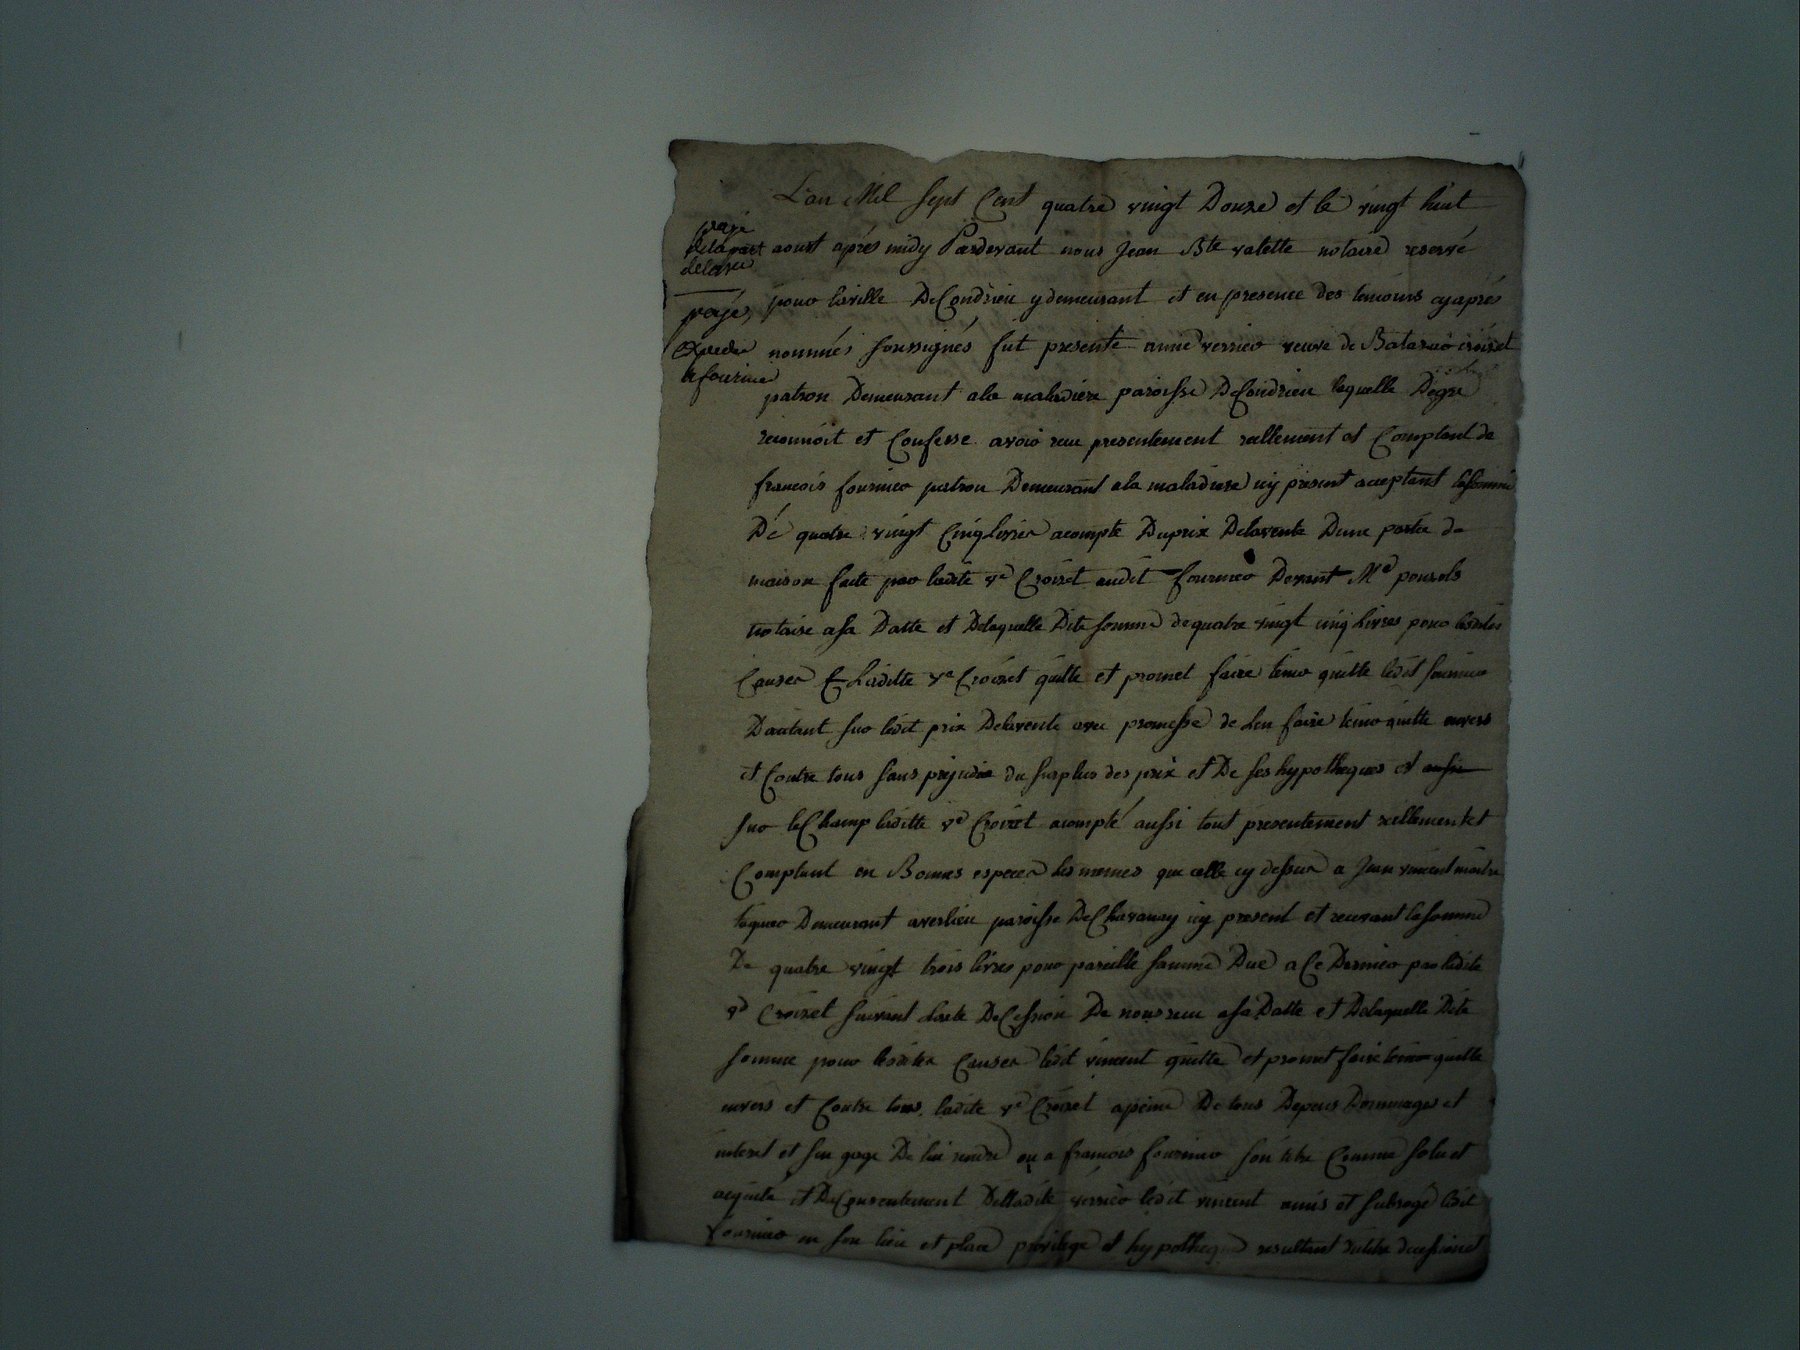 L'an Mil Sept Cent quatre vingt Douze et le vingt huit
payé
dela part
aoust aprés midy Pardevant nous Jean Bte valette notaire reservé
payé,
pour laville De Condrieu y demeurant et en presence des temoins cyaprés
nommés soussignés fut presente anne verrier veuve de croizet
patron Demeurant ala maladiere paroisse De Condrieu laquelle Degré
reconnoit et Confesse avoir recu presentement reellement et Comptant de
francois fournier patron Demeurant ala maladiere icy present acceptant lasomme
De quatre vingt Cinq livres acompte Duprix Delavente Dune partie de
maison faite par ladite ve Croizet audit fournier Devant Me
notaire asa Datte et Delaquelle Dite somme de quatre vingt cinq livres pour lesdites
Causes Ladite ve Croizet quitte et promet faire tenir quitte ledit fournier
Dautant sur ledit prix Delavente avec promesse de Len faire tenir quitte envers
et Contre tous sans prejudice du surplus des prix et De ses hypotheques et
sur le Champ laditte ve Croizet acompté aussi tout presentement reellement et
Comptant en Bonnes especes les memes que celle cy dessus a Jean vincent maitre
Demeurant averlieu paroisse De Chavanay icy present et recevant lasomme
De quatre vingt trois livres pour pareille somme Due a Ce Dernier par ladite
ve Croizet suivant Lacte De Cession De nous recu asa Datte et Delaquelle Dite
somme pour lesdites Causes ledit vincent quitte et promet faire tenir quitte
envers et Contre tous, ladite ve Croizet apeine De tous Depens Dommages et
interet et sengage De lui rendre ou a francois fournier son titre Comme solu et
acquité et Du Consentement Delladite verrier ledit vincent a mis et subrogé ledit
fournier en son lieu et place privilege et hypotheque resultant dutitre